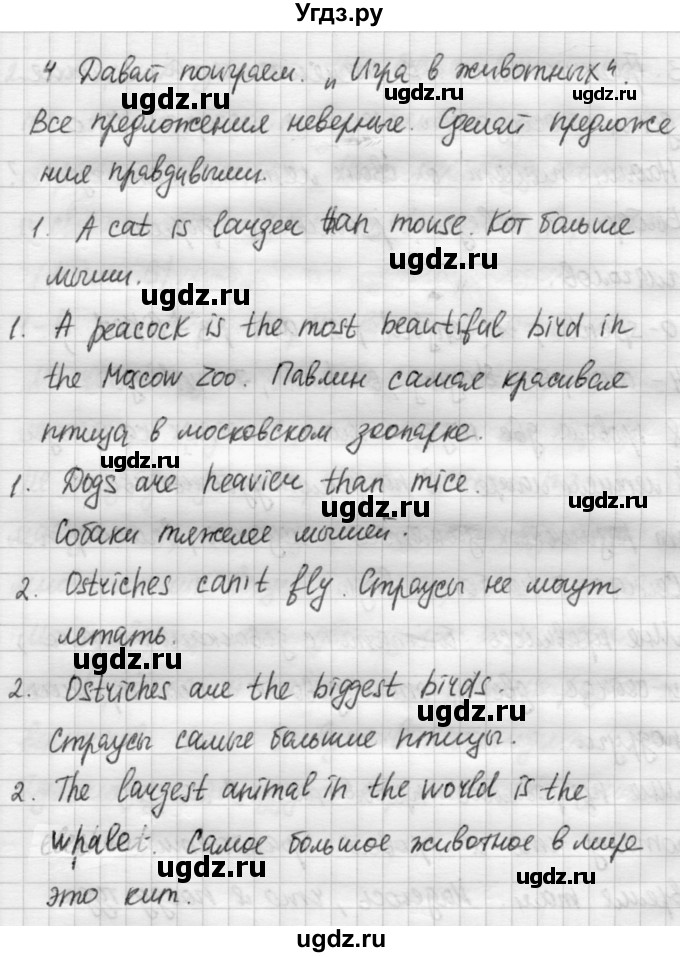 Угдз.ру
4 Давай поиграем. „Игра в животных“.
Все предложения неверные. Сделай предложе
ния правдивыми.
1. A cat is larger than mouse. Кот больше
мыши.
1. A peacock is the most beautiful bird in
the Moscow Zoo. Павлин самая красивая
птица в московском зоопарке.
1. Dogs are heavier than mice.
Собаки тяжелее мышей.
2. Ostriches can't fly. Страусы не могут
летать.
2. Ostriches are the biggest birds.
Страусы самые большие птицы.
2. The largest animal in the world is the
whale. Самое большое животное в мире
это кит.
ugdz.ru
ugdz.ru
ugdz.ru
ugdz.ru
ugdz.ru
ugdz.ru
ugdz.ru
ugdz.ru
ugdz.ru
ugdz.ru
ugdz.ru
ugdz.ru
ugdz.ru